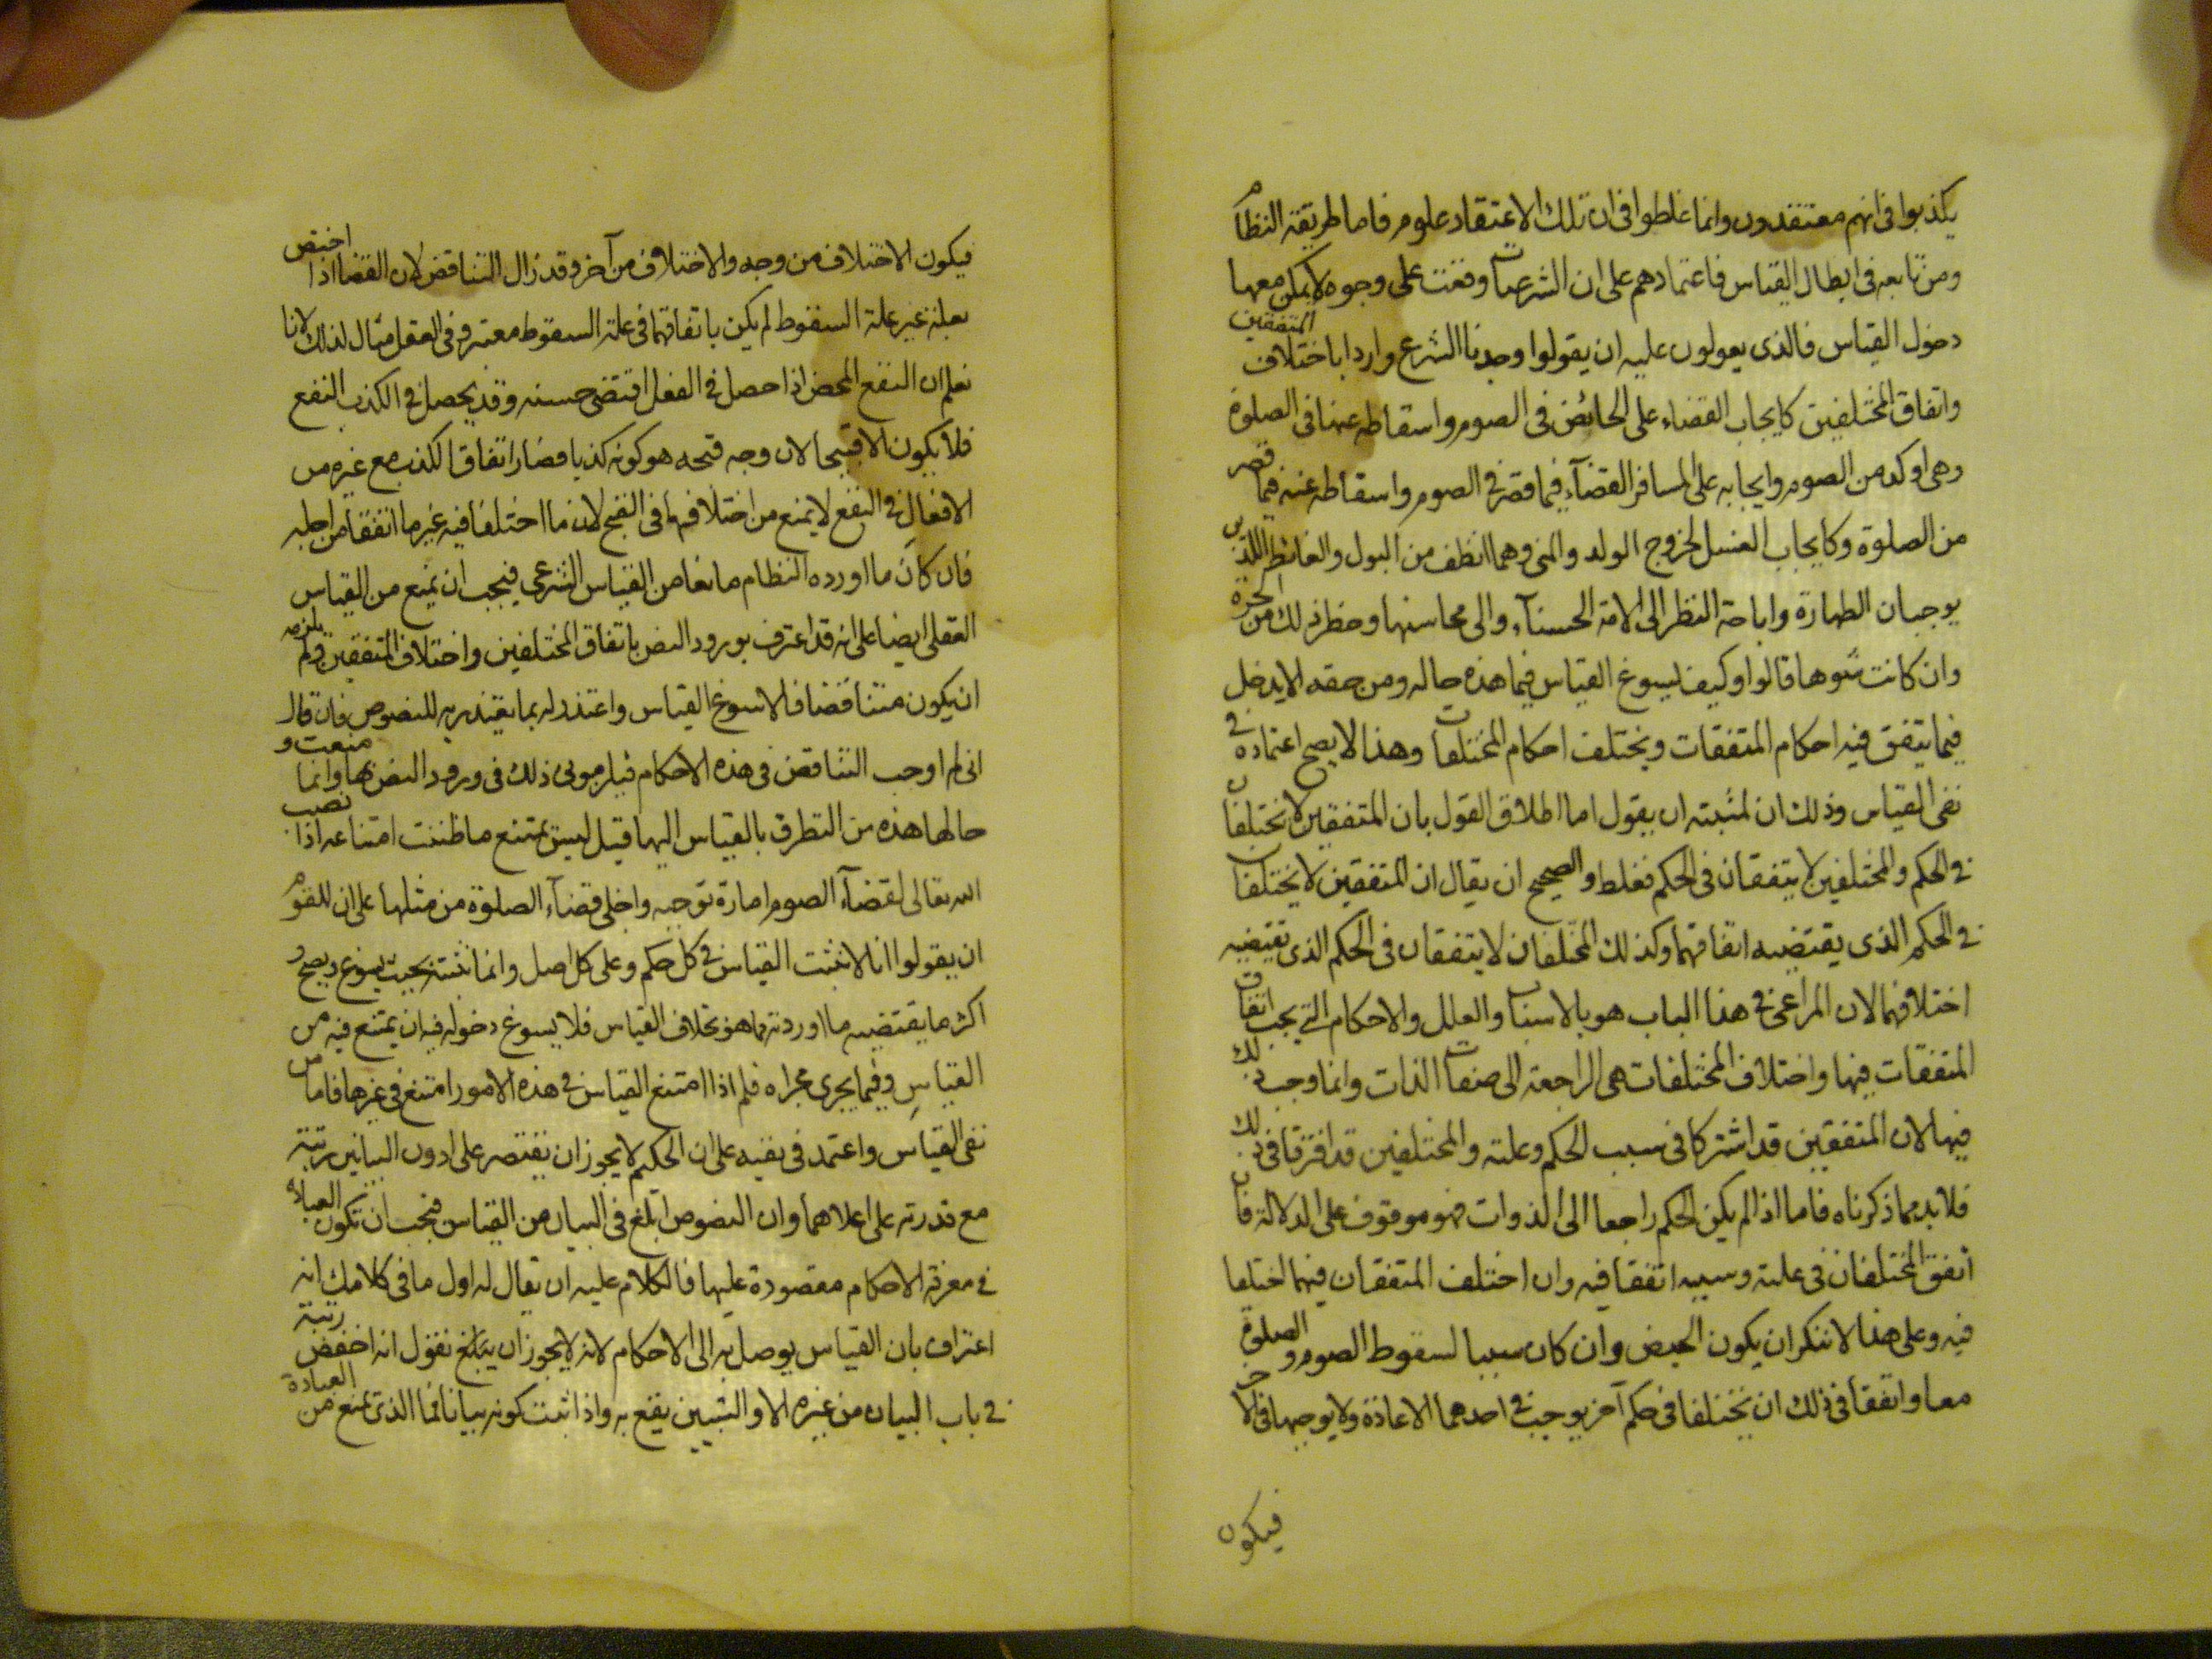 يكذبوا فى انهم معتقدون وانما غلطوا فى ان تلك الاعتقاد علوم فاما طريقة النظام
ومن تابعه فى ابطال القياس فاعتمادهم على ان الشرعيات وقعت على وجوه لا يمكن معها
دخول القياس فالذى يعولون عليه ان يقولوا وجدنا الشرع واردا باختلاف المتفقين
واتفاق المختلفين كايجاب القضاء على الحائض فى الصوم واسقاطه عنها فى الصلوة
وهى اوكد من الصوم وايجابه على المسافر القضاء فيما قصر فى الصوم واسقاطه عنه فيما قصر
من الصلوة وكايجاب الغسل لخروج الولد والمنى وهما انظف من البول والغائط اللذين
يوجبان الطهارة واباحة النظر الى الامة الحسناء والى محاسنها وحظر ذلك من الحرة
وان كانت شوها قالوا وكيف يسوغ القياس فيما هذه حاله ومن حقه الا يدخل
فيما يتفق فيه احكام المتفقات ويختلف احكام المختلفات وهذا لا يصح اعتماده فى
نفى القياس وذلك ان لمثبته ان يقول اما اطلاق القول بان المتفقين لا يختلفان
فى الحكم والمختلفين لا يتفقان فى الحكم فغلط والصحيح ان يقال ان المتفقين لا يختلفان
فى الحكم الذى يقتضيه اتفاقهما وكذلك المختلفان لا يتفقان فى الحكم الذى يقتضيه
اختلافهما لان المراعى فى هذا الباب هو بالاسباب والعلل والاحكام التى يجب اتفاق
المتفقات فيها واختلاف المختلفات هى الراجعة الى صفات الذات وانما وجب ذلك
فيها لان المتفقين قد اشتركا فى سبب الحكم وعلته والمختلفين قد افترقا فى ذلك
فلا بد مما ذكرناه فاما اذا لم يكن الحكم راجعا الى الذوات فهو موقوف على الدلالة فان
اتفق المختلفان فى علته وسببه اتفقا فيه وان اختلف المتفقان فيهما اختلفا
فيه وعلى هذا لا ننكر ان يكون الحيض وان كان سببا لسقوط الصوم والصلوة
معا واتفقا فى ذلك ان يختلفا فى حكم آخر يوجب فى احدهما الاعادة ولا يوجبها فى الاخر
فيكون
فيكون الاختلاف من وجه والاختلاف من آخر وقد زال التناقض لان القضا اذا اختص
بعلة غير علة السقوط لم يكن باتفاقهما فى علة السقوط معتبر وفى العقل مثال لذلك لانا
نعلم ان النفع المحض اذا حصل فى الفعل اقتضى حسنه وقد يحصل فى الكذب النفع
فلا يكون الا قبيحا لان وجه قبحه هو كونه كذبا فصار اتفاق الكذب مع غيره من
الافعال فى النفع لا يمنع من اختلافهما فى القبح لان ما اختلفا فيه غير ما اتفقا من اجله
فان كان ما اورده النظام مانعا من القياس الشرعى فيجب ان يمنع من القياس
العقلى ايضا على انه قد اعترف بورود النص باتفاق المختلفين واختلاف المتفقين ولم يلزمه
ان يكون متناقضا فالا سوغ القياس واعتذر له بما يعتذر به للنصوص فان قال
انى لم اوجب التناقض فى هذه الاحكام فيلزمونى ذلك فى ورود النص بها وانما منعت و
حالها هذه من التطرق بالقياس اليها قيل ليس يمتنع ما ظننت امتناعه اذا نصب
الله تعالى لقضاء الصوم امارة توجبه واخلى قضاء الصلوة من مثلها على ان للقوم
ان يقولوا انا لا نثبت القياس فى كل حكم وعلى كل اصل وانما نثبته بحيث يسوغ ويصح و
اكثر ما يقتضيه ما اوردته مما هو بخلاف القياس فلا يسوغ دخوله فيه ان يمتنع فيه من
القياس وفيما يجرى مجراه فلم اذا امتنع القياس فى هذه الامور امتنع فى غيرها فاما من
نفى القياس واعتمد فى نفيه على ان الحكيم لا يجوز ان يقتصر على ادون البيانين رتبة
مع قدرته على اعلاهما وان النصوص ابلغ فى البيان من القياس فيجب ان تكون العبادة
فى معرفة الاحكام مقصودة عليها فالكلام عليه ان يقال له اول ما فى كلامك انه
اعتراف بان القياس يوصل به الى الاحكام لانه لا يجوز ان نقول انه اخفض رتبة
فى باب البيان من غيره الا والتبيين يقع به واذا ثبت كونه بيانا فما الذى يمنع من العبادة